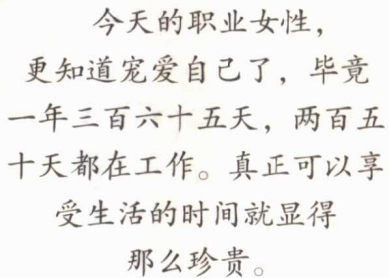 今天的职业女性，
更知道宠爱自己了，毕竟
一年三百六十五天，两百五
十天都在工作。真正可以享
受生活的时间就显得
那么珍贵。